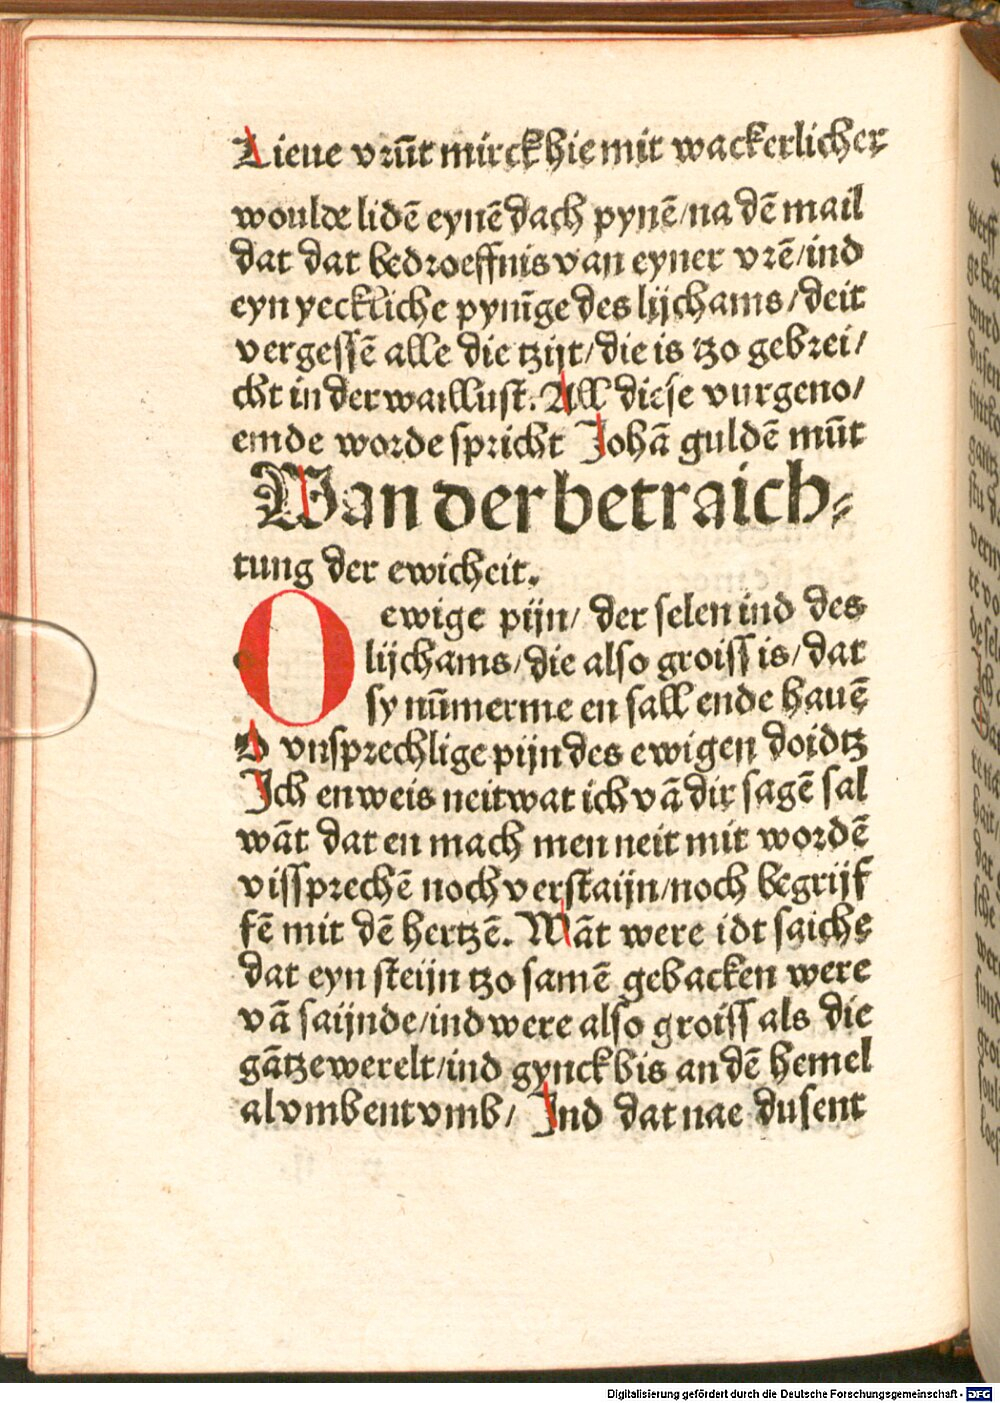 Lieue vrūt mirck hie mit wackerlicher
woulde lidē eynē dach pynē/na dē mail
dat dat bedroeffnis van eyner vrē/ind
eyn yeckliche pynīge des lijchams/deit
vergessē alle die tzijt/die is tzo gebrei/
cht in der waillust. All diese vurgeno/
emde worde spricht Johā guldē mūt
Wan der betraich⸗
tung der ewicheit.
O ewige pijn/ der selen ind des
lijchams/die also groiss is/dat
sy nūmerme en sall ende hauē
O vnsprechlige pijn des ewigen doidtz
Ich en weis neit wat ich vā dir sagē sal
wāt dat en mach men neit mit wordē
vissprechē noch verstaijn/noch begrijf
fē mit dē hertzē. Wāt were idt saichs
dat eyn steijn tzo samē gebacken were
vā saijnde/ind were also groiss als die
gātze werelt/ind gynck bis an dē hemel
al vmbent vmb/ Ind dat nae dusent
Digitalisierung gefördert durch die Deutsche Forschungsgemeinschaft - DFG